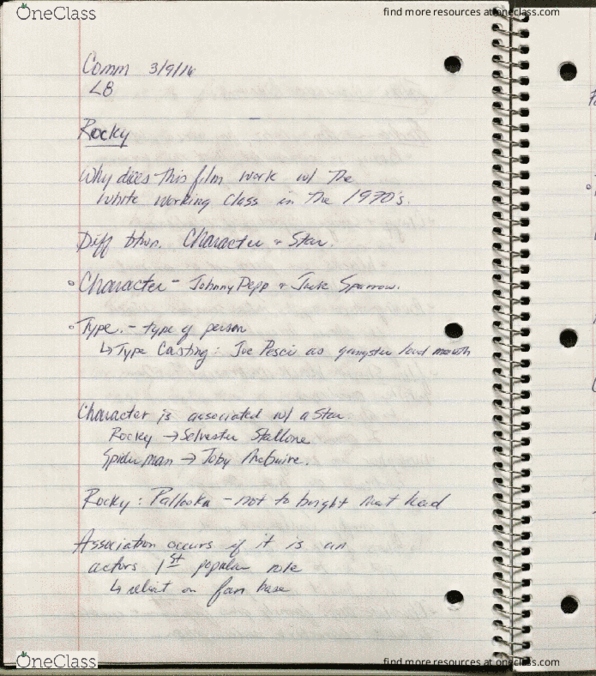 OneClass
find more resources at oneclass.com
Comm 3/9/16
L8
Rocky
Why does this film work w/ The
White Working Class in The 1970's.
Diff btwn. Character + Star.
Character - Johnny Depp + Jack Sparrow.
Type. - type of person
↳ Type Casting: Joe Pesci as gangster loud mouth
Character is associated w/ a Star
Rocky → Selvester Stallone
Spiderman → Toby McGuire.
Rocky: Pallooka - not to bright meat head
Association occurs if it is an
actors 1st popular role
↳ reliant on fan base
OneClass
find more resources at oneclass.com